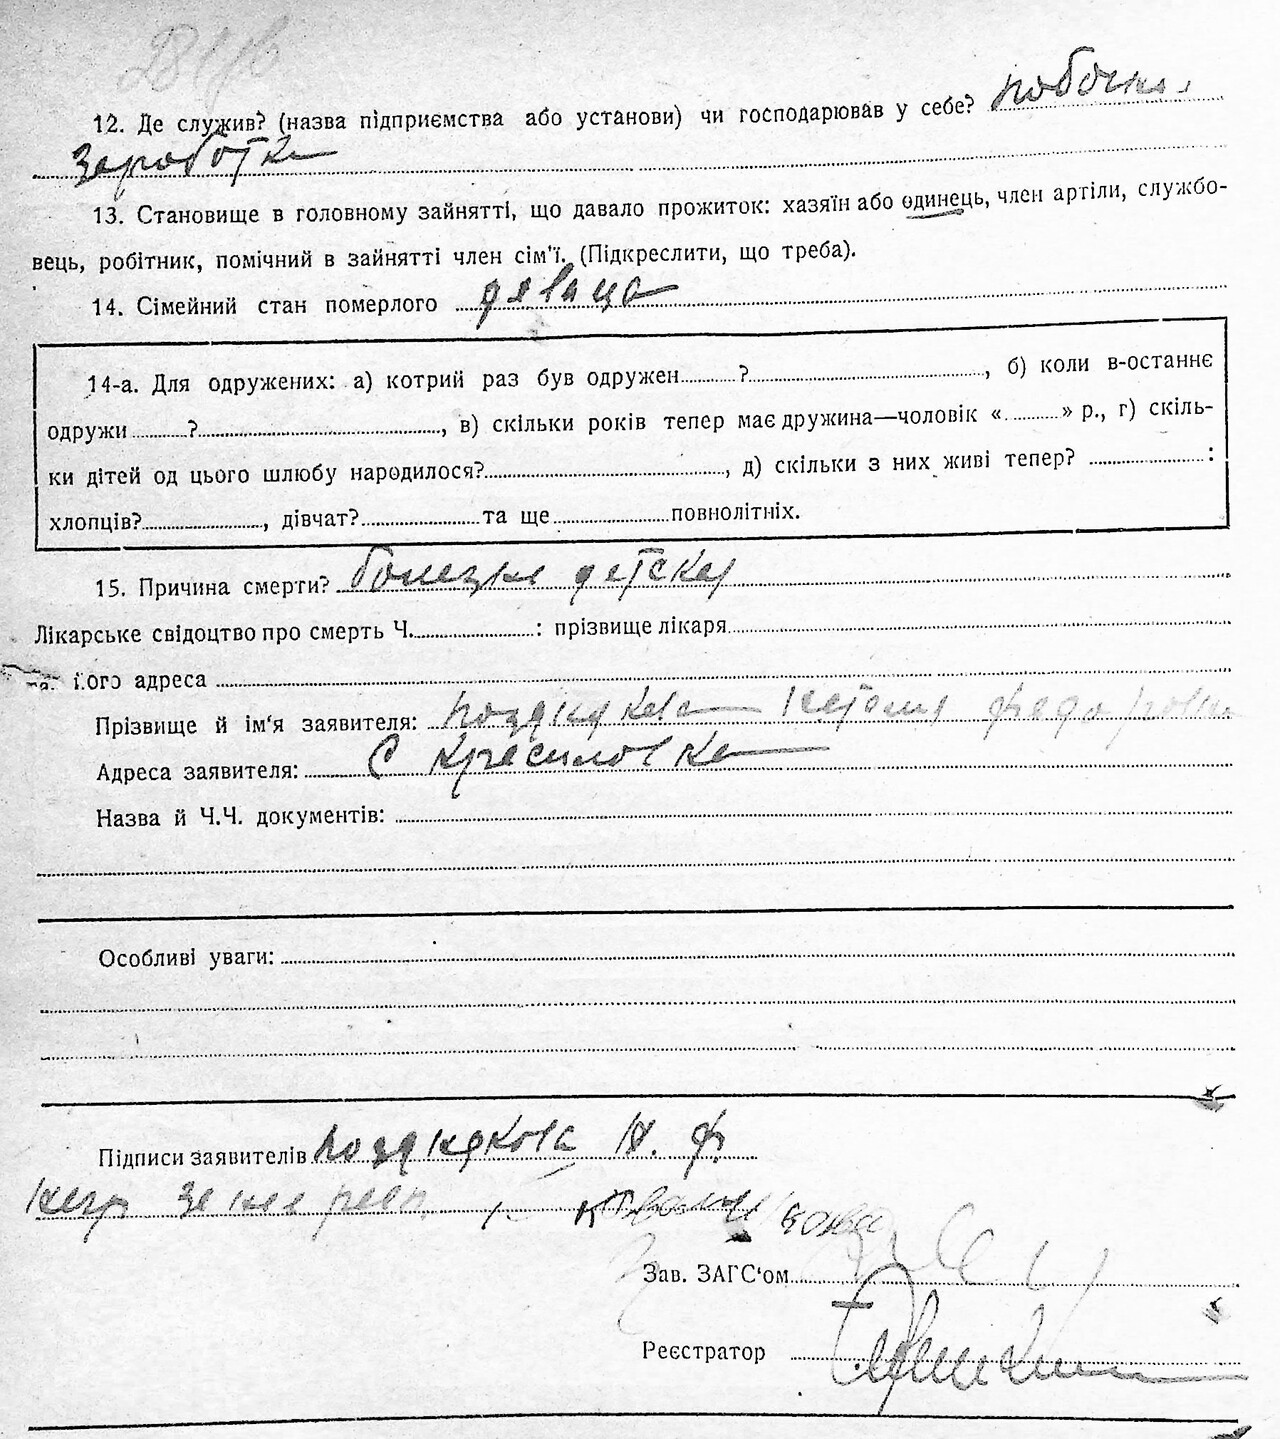 12. Де служив? (назва підприємства або установи) чи господарював у себе? побочная
заработка
13. Становище в головному зайнятті, що давало прожиток: хазяїн або одинець, член артіли, службо-
вець, робітник, помічний в зайнятті член сім'ї. (Підкреслити, що треба).
14. Сімейний стан померлого девица
14-а. Для одружених: а) котрий раз був одружен ? , б) коли в-останнє
одружи ? , в) скільки років тепер має дружина—чоловік « » р., г) скіль-
ки дітей од цього шлюбу народилося? , д) скільки з них живі тепер? :
хлопців? , дівчат? та ще повнолітніх.
15. Причина смерти? болезня детская
Лікарське свідоцтво про смерть Ч. : прізвище лікаря
його адреса
Прізвище й ім'я заявителя: федоровна
Адреса заявителя: С Красиловка
Назва й Ч.Ч. документів:
Особливі уваги:
Підписи заявителів Н. Ф.
Зав. ЗАГС'ом
Реєстратор